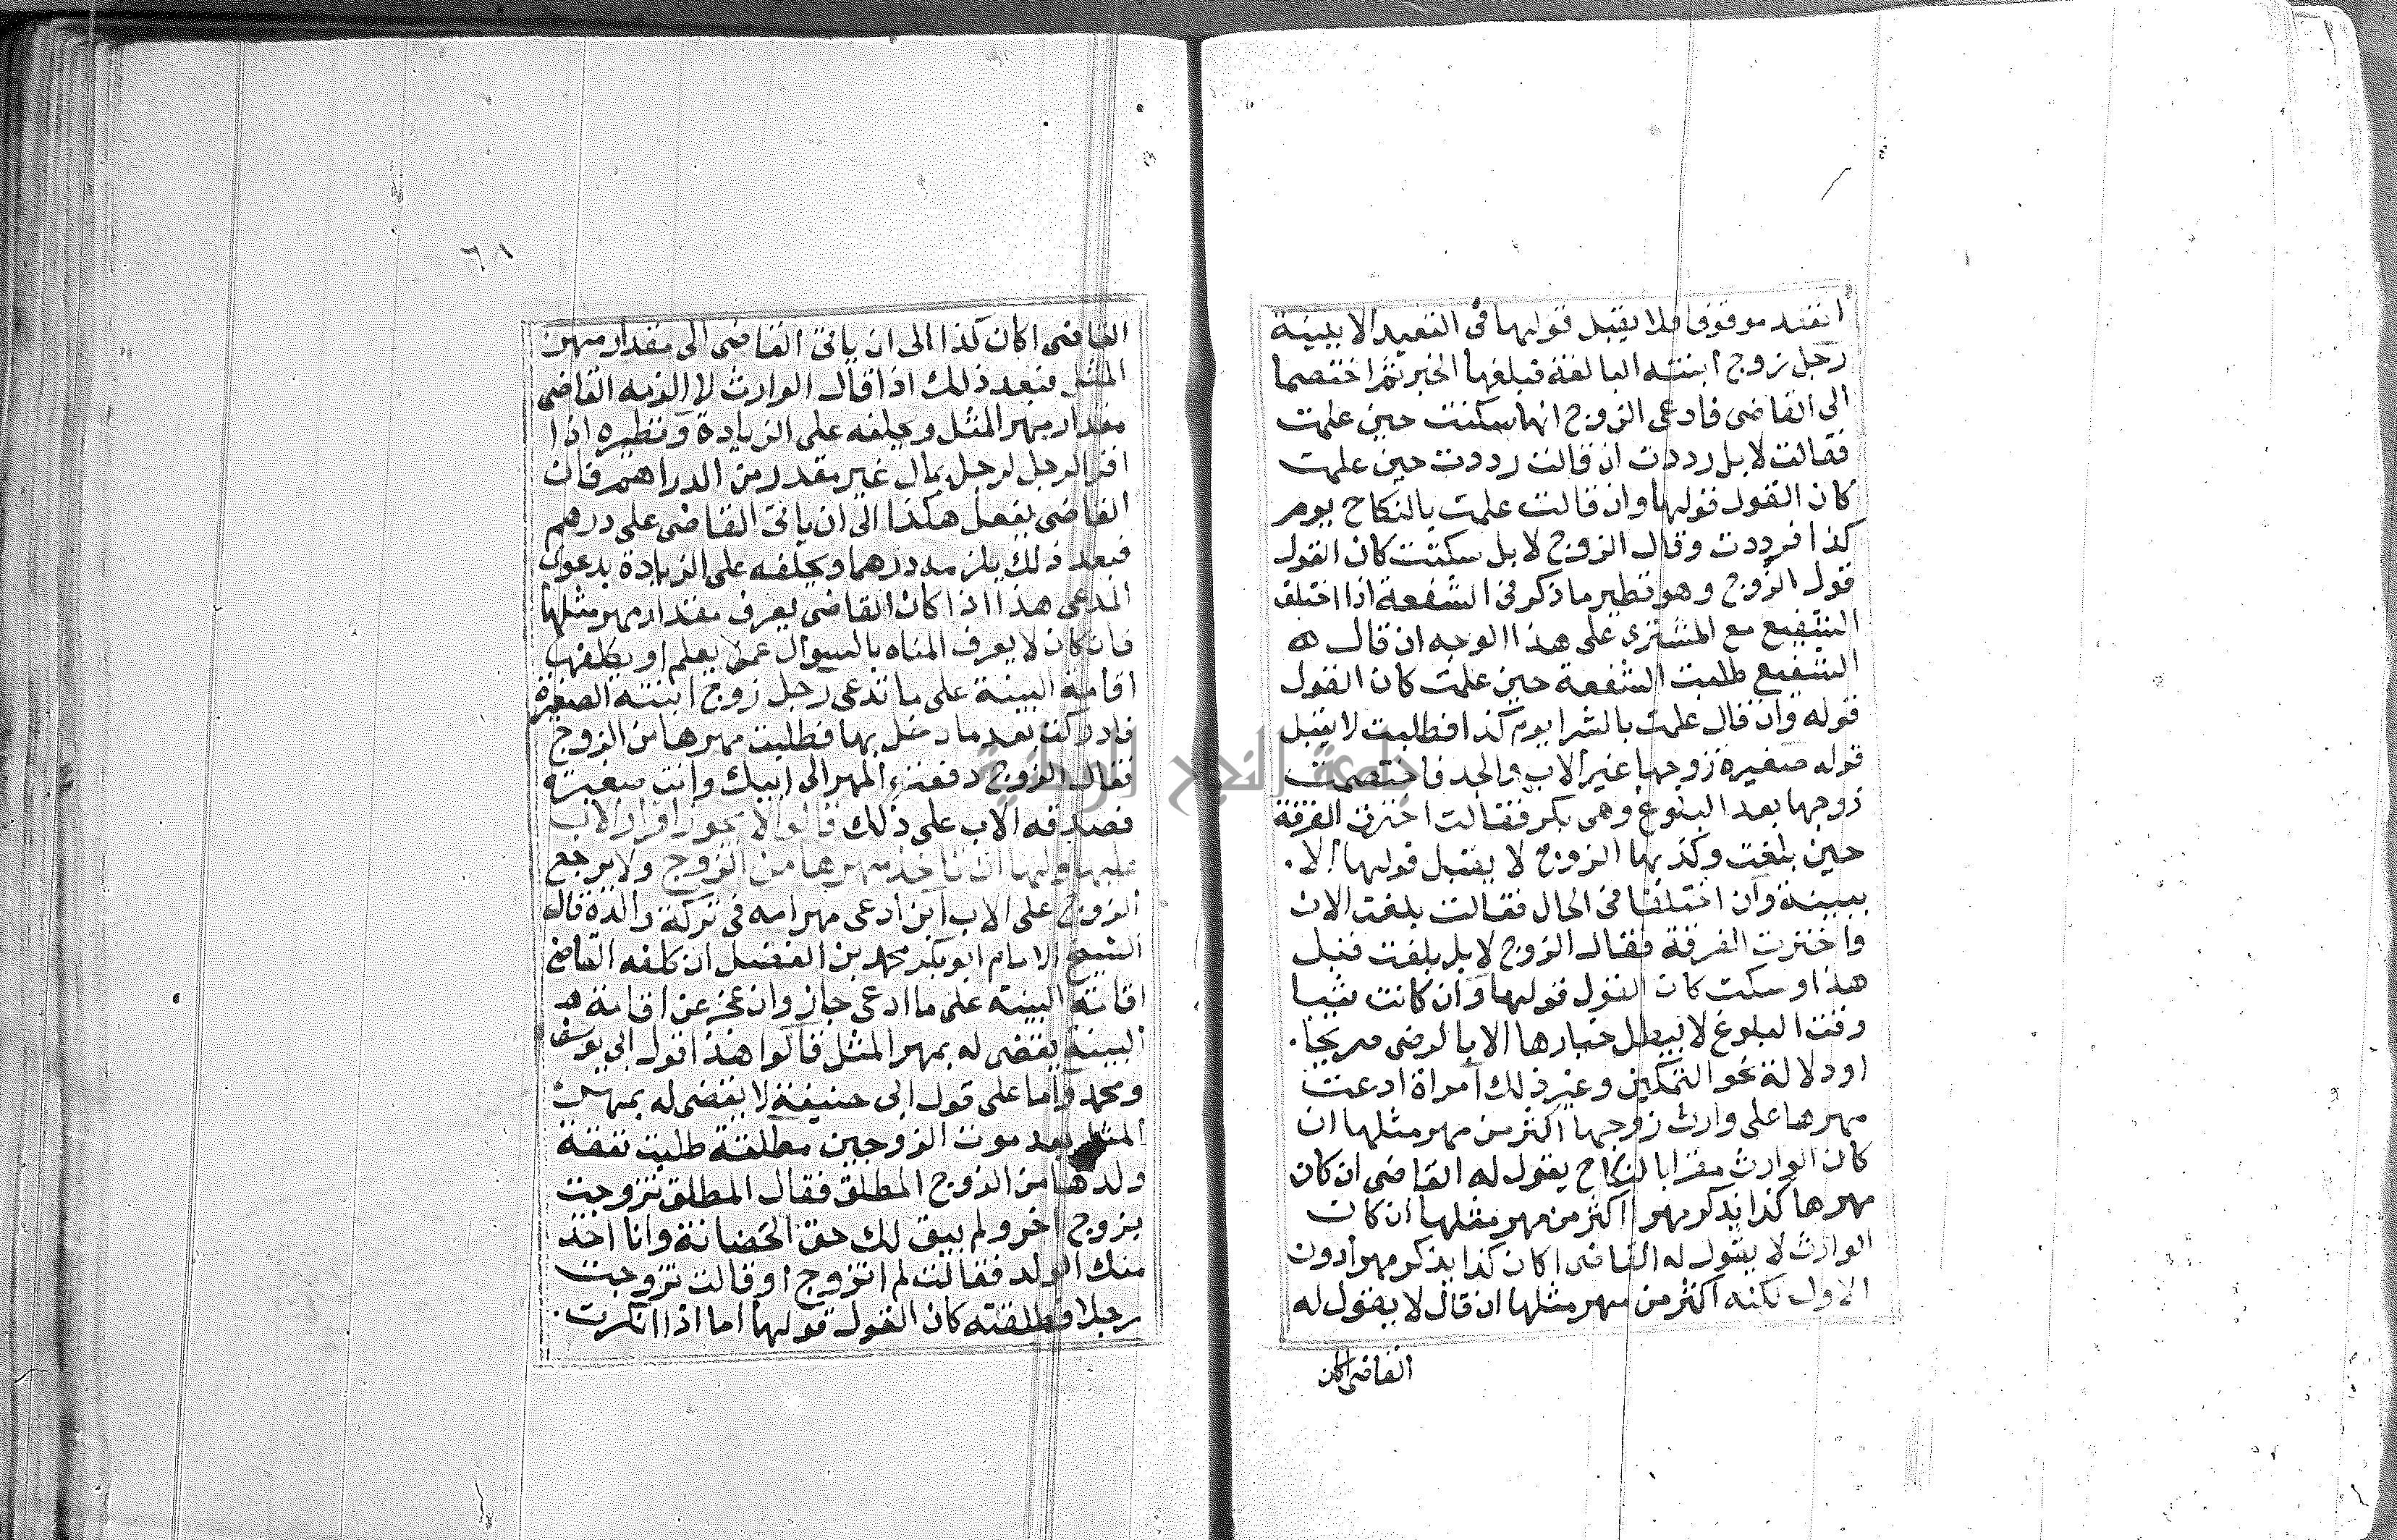 انعقد موقوفا فلا يقبل قولها في التقييد الا ببينة
رجل زوج ابنته البالغة فبلغها الخبر ثم اختصما
الى القاضي فادعى الزوج انها سكتت حين علمت
فقالت لا بل رددت ان قالت رددت حين علمت
كان القول قولها وان قالت علمت بالنكاح يوم
كذا فرددت وقال الزوج لا بل سكتت كان القول
قول الزوج وهو نظير ما ذكر في الشفعة اذا اختلف
الشفيع مع المشتري على هذا الوجه ان قال
الشفيع طلبت الشفعة حين علمت كان القول
قوله وان قال علمت بالشرا يوم كذا فطلبت لا يقبل
قوله صغيرة زوجها غير الاب والجد فاختصمت
زوجها بعد البلوغ وهي بكر فقالت اخترت الفرقة
حين بلغت وكذبها الزوج لا يقبل قولها الا
ببينة وان اختلفا في الحال فقالت بلغت الان
واخترت الفرقة فقال الزوج لا بل بلغت قبل
هذا وسكت كان القول قولها وان كانت ثيبا
وقت البلوغ لا يبطل خيارها الا بالرضى صريحا
او دلالة نحو التمكين وغير ذلك امراة ادعت
مهرها على وارث زوجها اكثر من مهر مثلها ان
كان الوارث مقرا بالنكاح يقول له القاضي ان كان
مهرها كذا يذكر مهر اكثر من مهر مثلها ان كان
الوارث لا يقول له القاضي اكان كذا يذكر مهرا دون
الاول لكنه اكثر من مهر مثلها ان قال لا يقول له
القاضي اكان
٦٨
القاضي اكان كذا الى ان ياتى القاضي الى مقدار مهر
المثل فبعد ذلك اذا قال الوارث لا الزمه القاضي
مقدار مهر المثل ويحلفه على الزيادة ونظيره اذا
اقر الرجل لرجل بمال غير مقدر من الدراهم فان
القاضي يفعل هكذا الى ان ياتى القاضي على درهم
فبعد ذلك يلزمه درهما ويحلفه على الزيادة بدعوى
المدعى هذا اذا كان القاضي يعرف مقدار مهر مثلها
فان كان لا يعرف امناه بالسوال عمن يعلم او يكلفها
اقامة البينة على ما تدعى رجل زوج ابنته الصغيرة
فادركت بعد ما دخل بها فطلبت مهرها من الزوج
فقال الزوج دفعت المهر الى ابيك وانت صغيرة
فصدقه الاب على ذلك قالوا لا يجوز اقرار الاب
عليها ولها ان تاخذ مهرها من الزوج ولا يرجع
الزوج على الاب ابن ادعى مهر امه في تركة والده قال
الشيخ الامام ابو بكر محمد بن الفضل ان كلفه القاضي
اقامة البينة على ما ادعى جاز وان عجز عن اقامة
البينة يقضى له بمهر المثل قالوا هذا قول ابي يوسف
ومحمد واما على قول ابي حنيفة لا يقضى له بمهر
المثل بعد موت الزوجين مطلقة طلبت نفقة
ولدها من الزوج المطلق فقال المطلق تزوجت
بزوج اخر ولم يبق لك حق الحضانة وانا اخذ
منك الولد فقالت لم اتزوج او قالت تزوجت
رجلا وطلقته كان القول قولها اما اذا انكرت
جامعة النجاح الوطنية